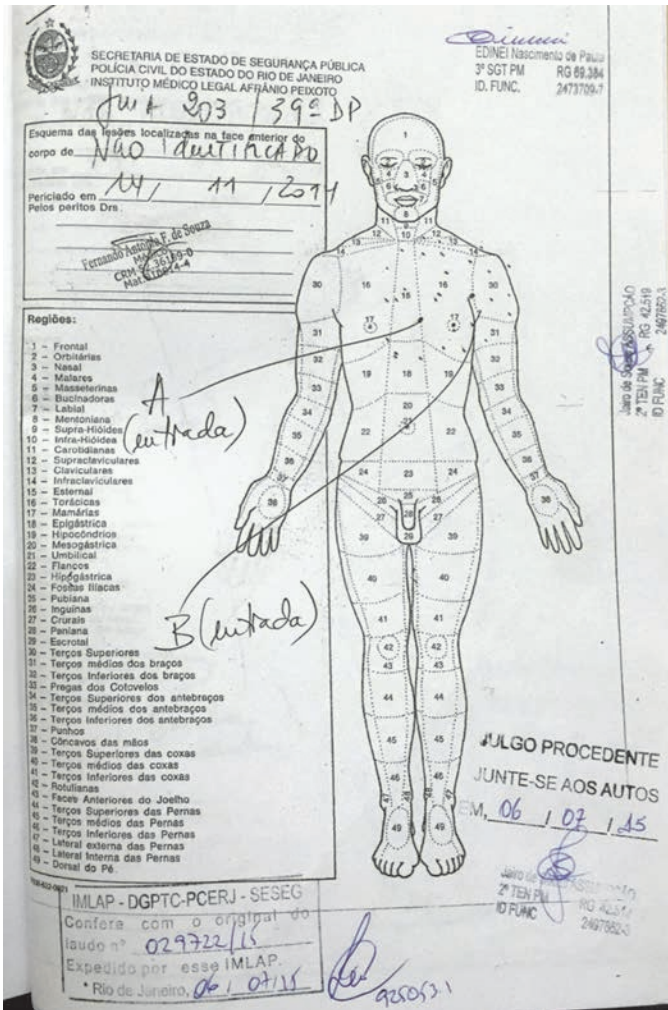 SECRETARIA DE ESTADO DE SEGURANÇA PÚBLICA
POLÍCIA CIVIL DO ESTADO DO RIO DE JANEIRO
INSTITUTO MÉDICO LEGAL AFRÂNIO PEIXOTO
203 / 39ª DP
EDINEI Nascimento de Paula
3º SGT PM RG 69.384
ID. FUNC. 2473709-7
Esquema das lesões localizadas na face anterior do
corpo de NÃO IDENTIFICADO
Periciado em 14 / 11 / 2014
Pelos peritos Drs.
Fernando Antonio F. de Souza
Médico
Regiões:
1 – Frontal
2 – Orbitárias
3 – Nasal
4 – Malares
5 – Masseterinas
6 – Bucinadoras
7 – Labial
8 – Mentoniana
9 – Supra-Hióides
10 – Infra-Hióidea
11 – Carotidianas
12 – Supraclaviculares
13 – Claviculares
14 – Infraclaviculares
15 – Esternal
16 – Torácicas
17 – Mamárias
18 – Epigástrica
19 – Hipocôndrios
20 – Mesogástrica
21 – Umbilical
22 – Flancos
23 – Hipogástrica
24 – Fossas Ilíacas
25 – Pubiana
26 – Inguinas
27 – Crurais
28 – Peniana
29 – Escrotal
30 – Terços Superiores
31 – Terços médios dos braços
32 – Terços Inferiores dos braços
33 – Pregas dos Cotovelos
34 – Terços Superiores dos antebraços
35 – Terços médios dos antebraços
36 – Terços Inferiores dos antebraços
37 – Punhos
38 – Côncavos das mãos
39 – Terços Superiores das coxas
40 – Terços médios das coxas
41 – Terços Inferiores das coxas
42 – Rotulianas
43 – Faces Anteriores do Joelho
44 – Terços Superiores das Pernas
45 – Terços médios das Pernas
46 – Terços Inferiores das Pernas
47 – Lateral externa das Pernas
48 – Lateral Interna das Pernas
49 – Dorsal do Pé
A
(entrada)
B (entrada)
2º TEN PM RG 42.519
ID FUNC 2497662-3
JULGO PROCEDENTE
JUNTE-SE AOS AUTOS
EM, 06 / 07 / 15
2º TEN PM
ID FUNC 2497662-3
IMLAP - DGPTC-PCERJ - SESEG
Confere com o original do
laudo nº 029722/15
Expedido por esse IMLAP.
Rio de Janeiro, 06 / 07/15
925053.1